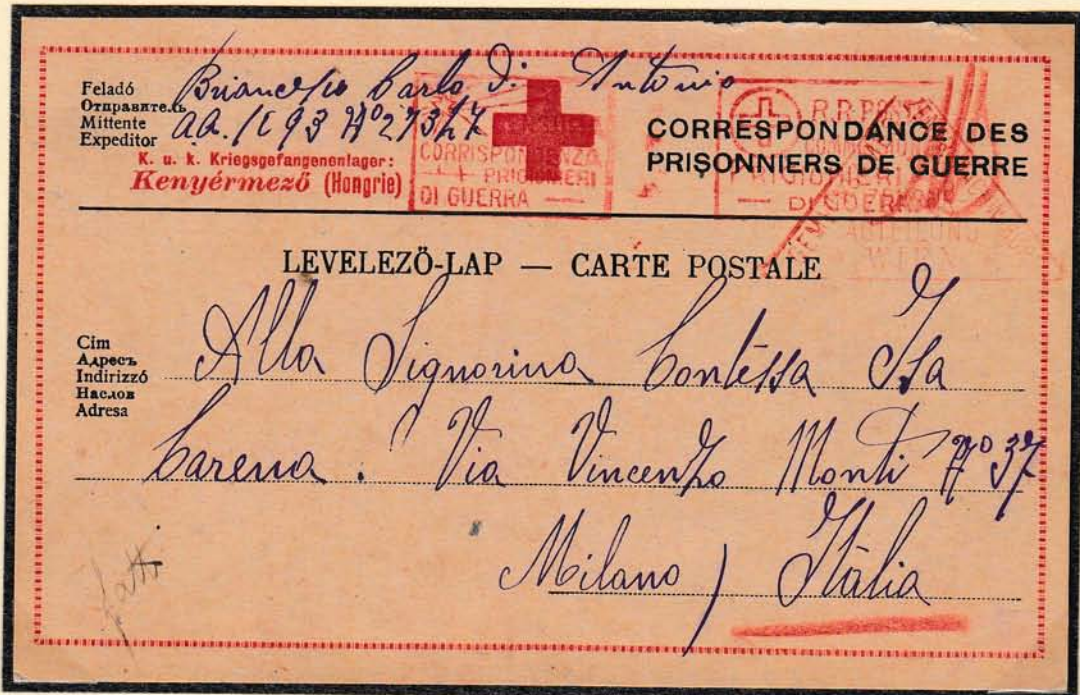 Feladó
Отправитель
Mittente
Expeditor
Carlo Di Antonio
K. u. k. Kriegsgefangenenlager:
Kenyérmező (Hongrie)
CORRISPONDENZA
PRIGIONIERI
DI GUERRA
R.R. POSTE
PRIGIONIERI
DI GUERRA
WIEN
CORRESPONDANCE DES
PRIȘONNIERS DE GUERRE
LEVELEZŐ-LAP — CARTE POSTALE
Cim
Адресъ
Indirizzó
Наслов
Adresa
Alla Signorina Contessa Isa
Carena. Via Vincenzo Monti Nº 37
Milano / Italia